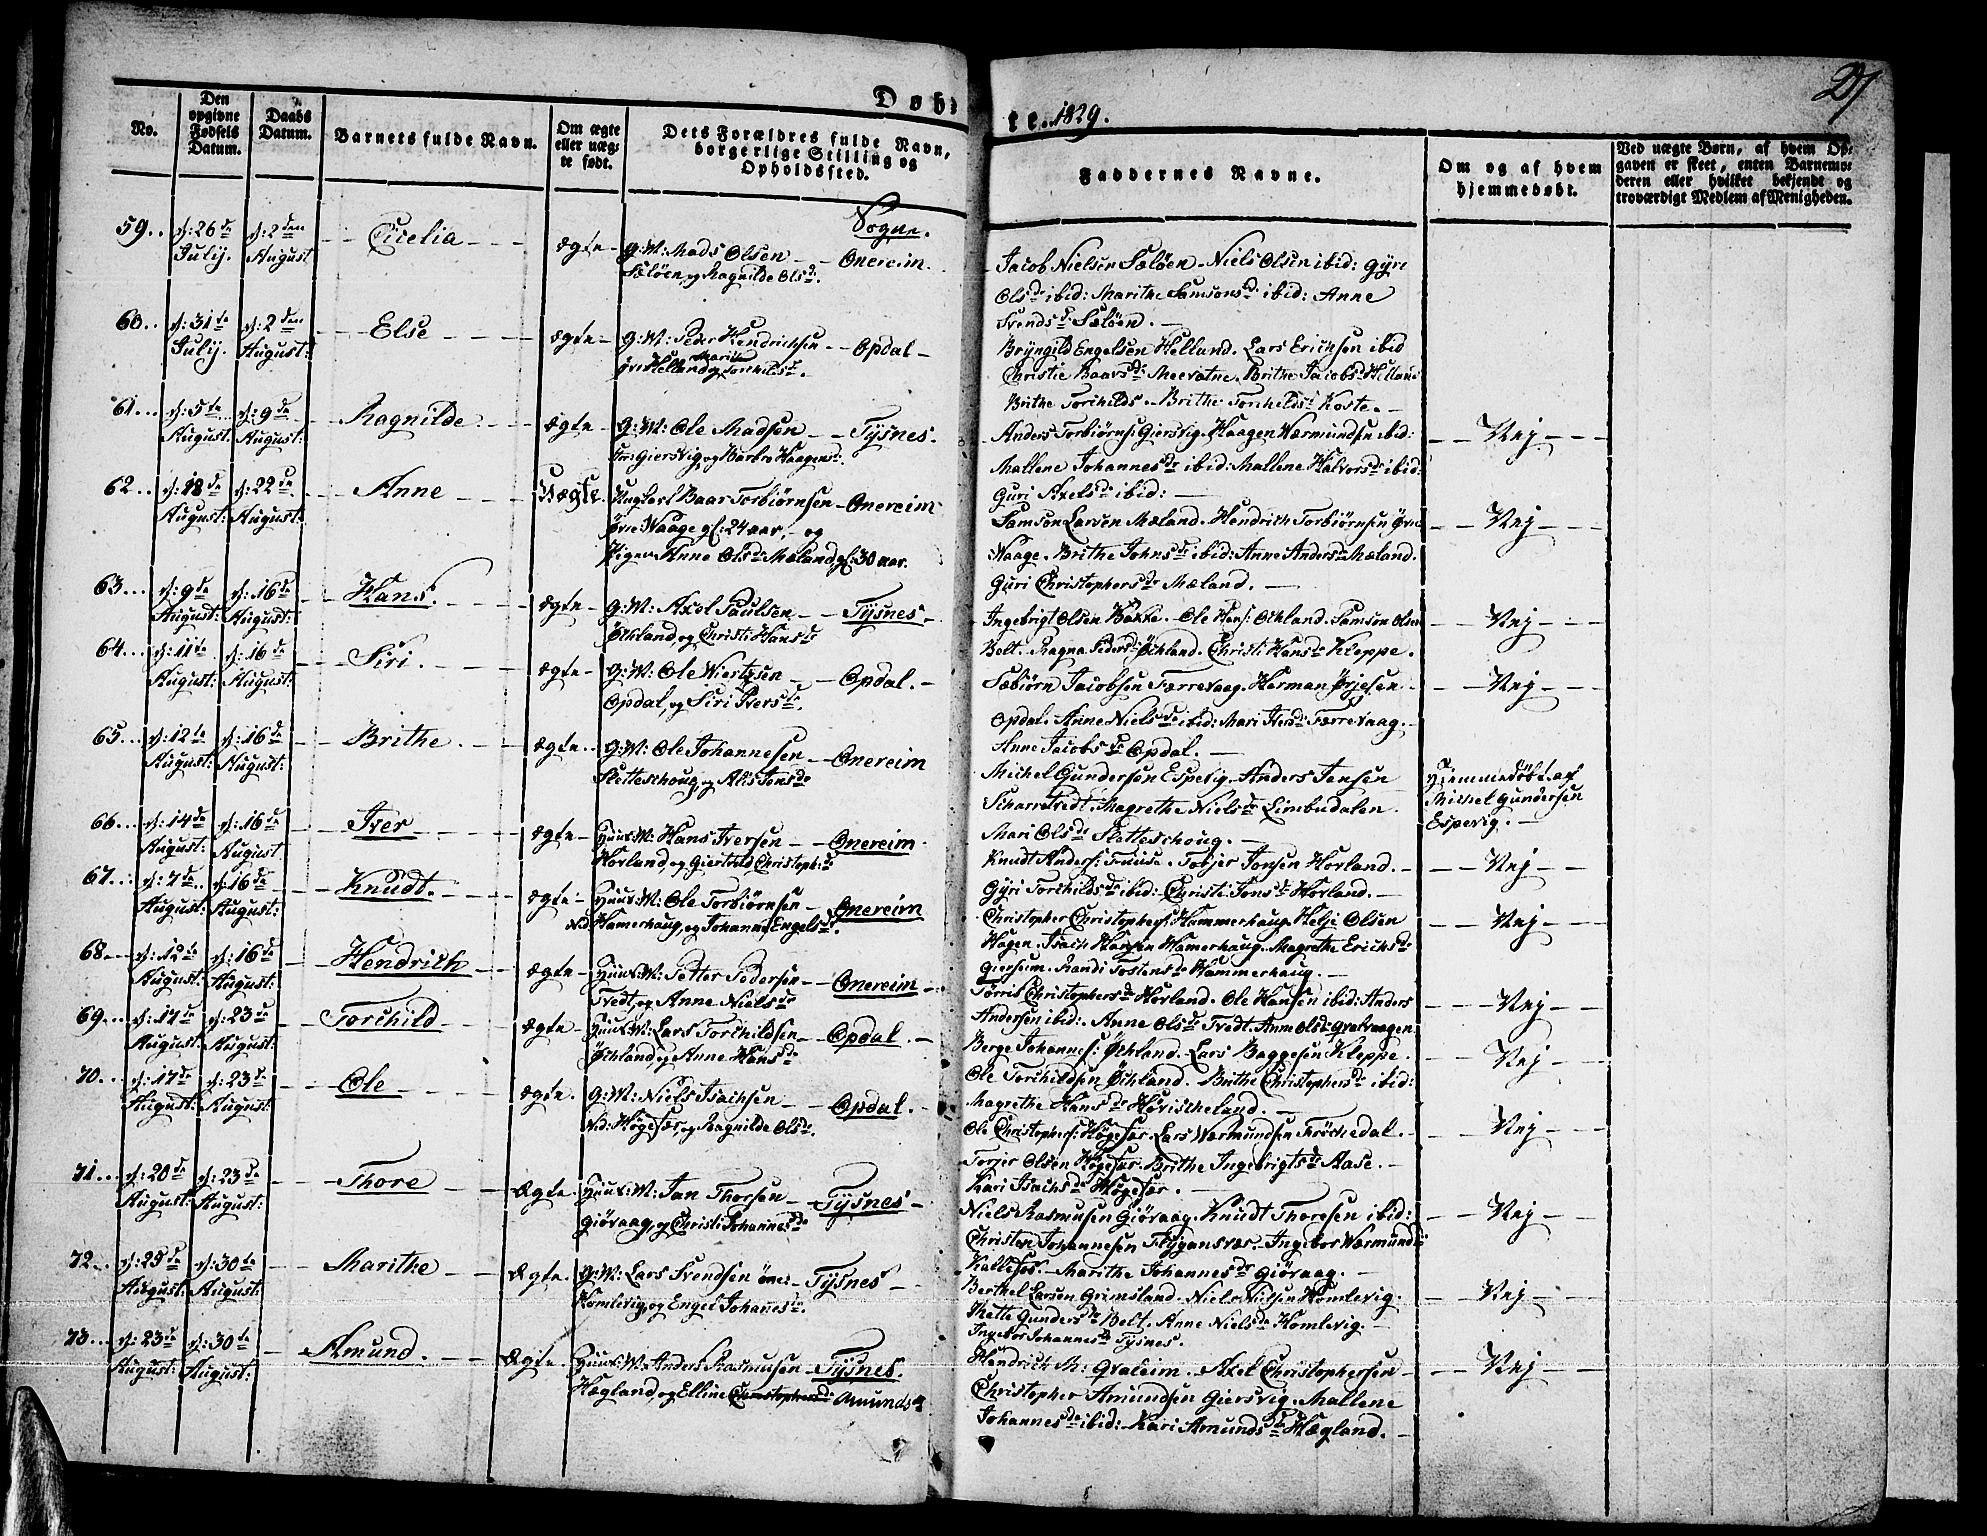 Døbte. 1829.
21
No.
Den opgivne Fødsels Datum.
Daabs Datum.
Barnets fulde Navn.
Om ægte eller uægte født.
Dets Forældres fulde Navn, borgerlige Stilling og Opholdssted.
Faddernes Navne.
Om og af hvem hjemmedøbt.
Ved uægte Børn, af hvem Opgaven er skeet, enten Barnemoderen eller hvilket bekjendt og troværdigt Medlem af Menigheden.
Sogne.
59.. d: 26de July. d: 2den August Cicelia ægte G: M: Mads Olsen Onereim.
Sæløen, og Magnilde Olsd.
Jacob Nielsen Sæløen. Niels Olsen ibid: Gyri
Olsd. ibid: Marithe Samsonsd. ibid: Anne
Svendsd. Sæløen.
60.. d: 31te July. d: 2den August: Else ægte G: M: Peder Hendrichsen Opdal
øvr Helland og Marithe Torchildsd.
Bryngild Engelsen Helland. Lars Erichsen ibid
Christie Baarsd. Meevatne. Brithe Jacobsd. Helland
Brithe Torchilds. Brithe Torchildsd. Koste.
61... d: 5te August: d: 9de August: Ragnilde ægte G: M: Ole Madsen Tysnes.
Giersvig og Barbro Haagensd.
Anders Torbiørns: Giersvig. Haagen Wermundsen ibid: Nej
Mallene Johannesdr ibid: Mallene Halvorsdr ibid:
Guri Axelsd. ibid:
62.. d: 18de August: d: 22de August: Anne Uægte. Ungkarl Baar Torbiørnsen Onereim
øvre Waage gl: 24 aar, og
Pigen Anne Olsdr Mæland gl: 30 aar.
Samson Larsen Mæland. Hendrich Torbiørnsen øvre Nej
Waage. Brithe Johnsdr ibid: Anne Andersdr Mæland.
Guri Christophersdr Mæland.
63... d: 9de August: d: 16de August: Hans. ægte G: M: Axel Paulsen Tysnes
Øchland, og Christi Hansdr
Ingebrigt Olsen Bakke. Ole Hans: Ochland. Samson Olsen Nej
Belt. Ragna Pedersd. Øchland. Christi Hansdr Kleppe.
64... d: 11te August: d: 16de August: Siri. ægte G: M: Ole Wiertsen Opdal.
Opdal og Siri Iversdr.
Sæbiørn Jacobsen Færrevaag. Herman Ørjesen Nej
Opdal. Anne Nielsdr ibid: Mari Iversdr Færrevaag.
Anne Jacobsdr Opdal.
65... d: 12te August: d: 16de August: Brithe. ægte. G: M: Ole Johannesen Onereim
Sletteschoug, og Alis Jonsdr
Michel Gundersen Espevig. Anders Jensen Hjemmedøbt af
Scharretvedt. Magrethe Nielsdr Limbudalen. Michel Gundersen
Mari Olsdr Sletteschoug. Espevig.
66... d: 14de August: d: 16de August Iver ægte Huus: M: Hans Iversen Onereim
Horland, og Giertrud Christoph:d
Knudt Anders: Fruise. Torjer Jonsen Horland. Nej
Gyri Torchildsdr ibid: Christi Jonsdr Horland.
67... d: 7de August: d: 16de August: Knudt. ægte Huus: M: Ole Torbiørnsen Onereim
Nd Hamerhaug, og Johanna Engelsd.
Christopher Christophers: Hammerhaug. Helje Olsen Nej
Hagen. Isach Hansen Hamerhaug. Magrethe Erichsdr
Gierheim. Randi Tostensdr Hammerhaug.
68... d: 12te August: d: 16de August: Hendrich ægte Huus: M: Petter Pedersen Onereim
Tvedt, og Anne Nielsdr
Torris Christophersdr Horland. Ole Hansen ibid: Anders Nej
Andersen ibid: Anne Olsdr Tvedt. Anne Olsdr Gravvaagen
69... d: 17de August: d: 23de August: Torchild ægte Huus: M: Lars Torchildsen Opdal.
Øchland, og Anne Hansdr
Berge Johannes: Øchland. Lars Baggesen Kleppe. Nej
Ole Torchildsen Øchland. Brithe Christophersdr ibid:
Magrethe Hansdr Hovischeland.
70... d: 17de August: d: 23de August: Ole ægte. G: M: Niels Isachsen Opdal.
Nd: Høgesær, og Ragnilde Olsdr.
Ole Christophers: Høgesær. Lars Wermundsen Trøchedal. Nej
Torjer Olsen Høgesær. Brithe Ingebrigtsdr Aase.
Kari Isachsdr Høgesær.
71... d: 20de August: d: 23de August: Thore Ægte. Huus: M: Jan Thorsen Tysnes
Giøvaag, og Christi Johannesdr
Niels Rasmusen Giøvaag. Knudt Thoresen ibid: Nej
Christen Johannesen Flygansvær. Ingebor Wermundsdr
Kallesøe. Marithe Johannesdr Giøvaag.
72.. d: 25de August: d: 30te August: Marithe Ægte. G: M: Lars Svendsen Tysnes
Homlevig, og Engel Johannesdr.
Berthel Larsen Grimsland. Niels Nielsen Homlevig. Nej
Mette Gundersdr Belt. Anne Nielsdr Homlevig.
Ingebor Johannesdr Tysnes.
73... d: 23de August: d: 30te August: Amund. Ægte. Huus: M: Anders Rasmusen Tysnes.
Hægland, og Elline Christophersd: Amundsdr
Hendrich M: Graleim. Axel Christophersen Nej
Christopher Amundsen Giersvig. Mallene
Johannesdr ibid: Kari Amundsdr Hægland.